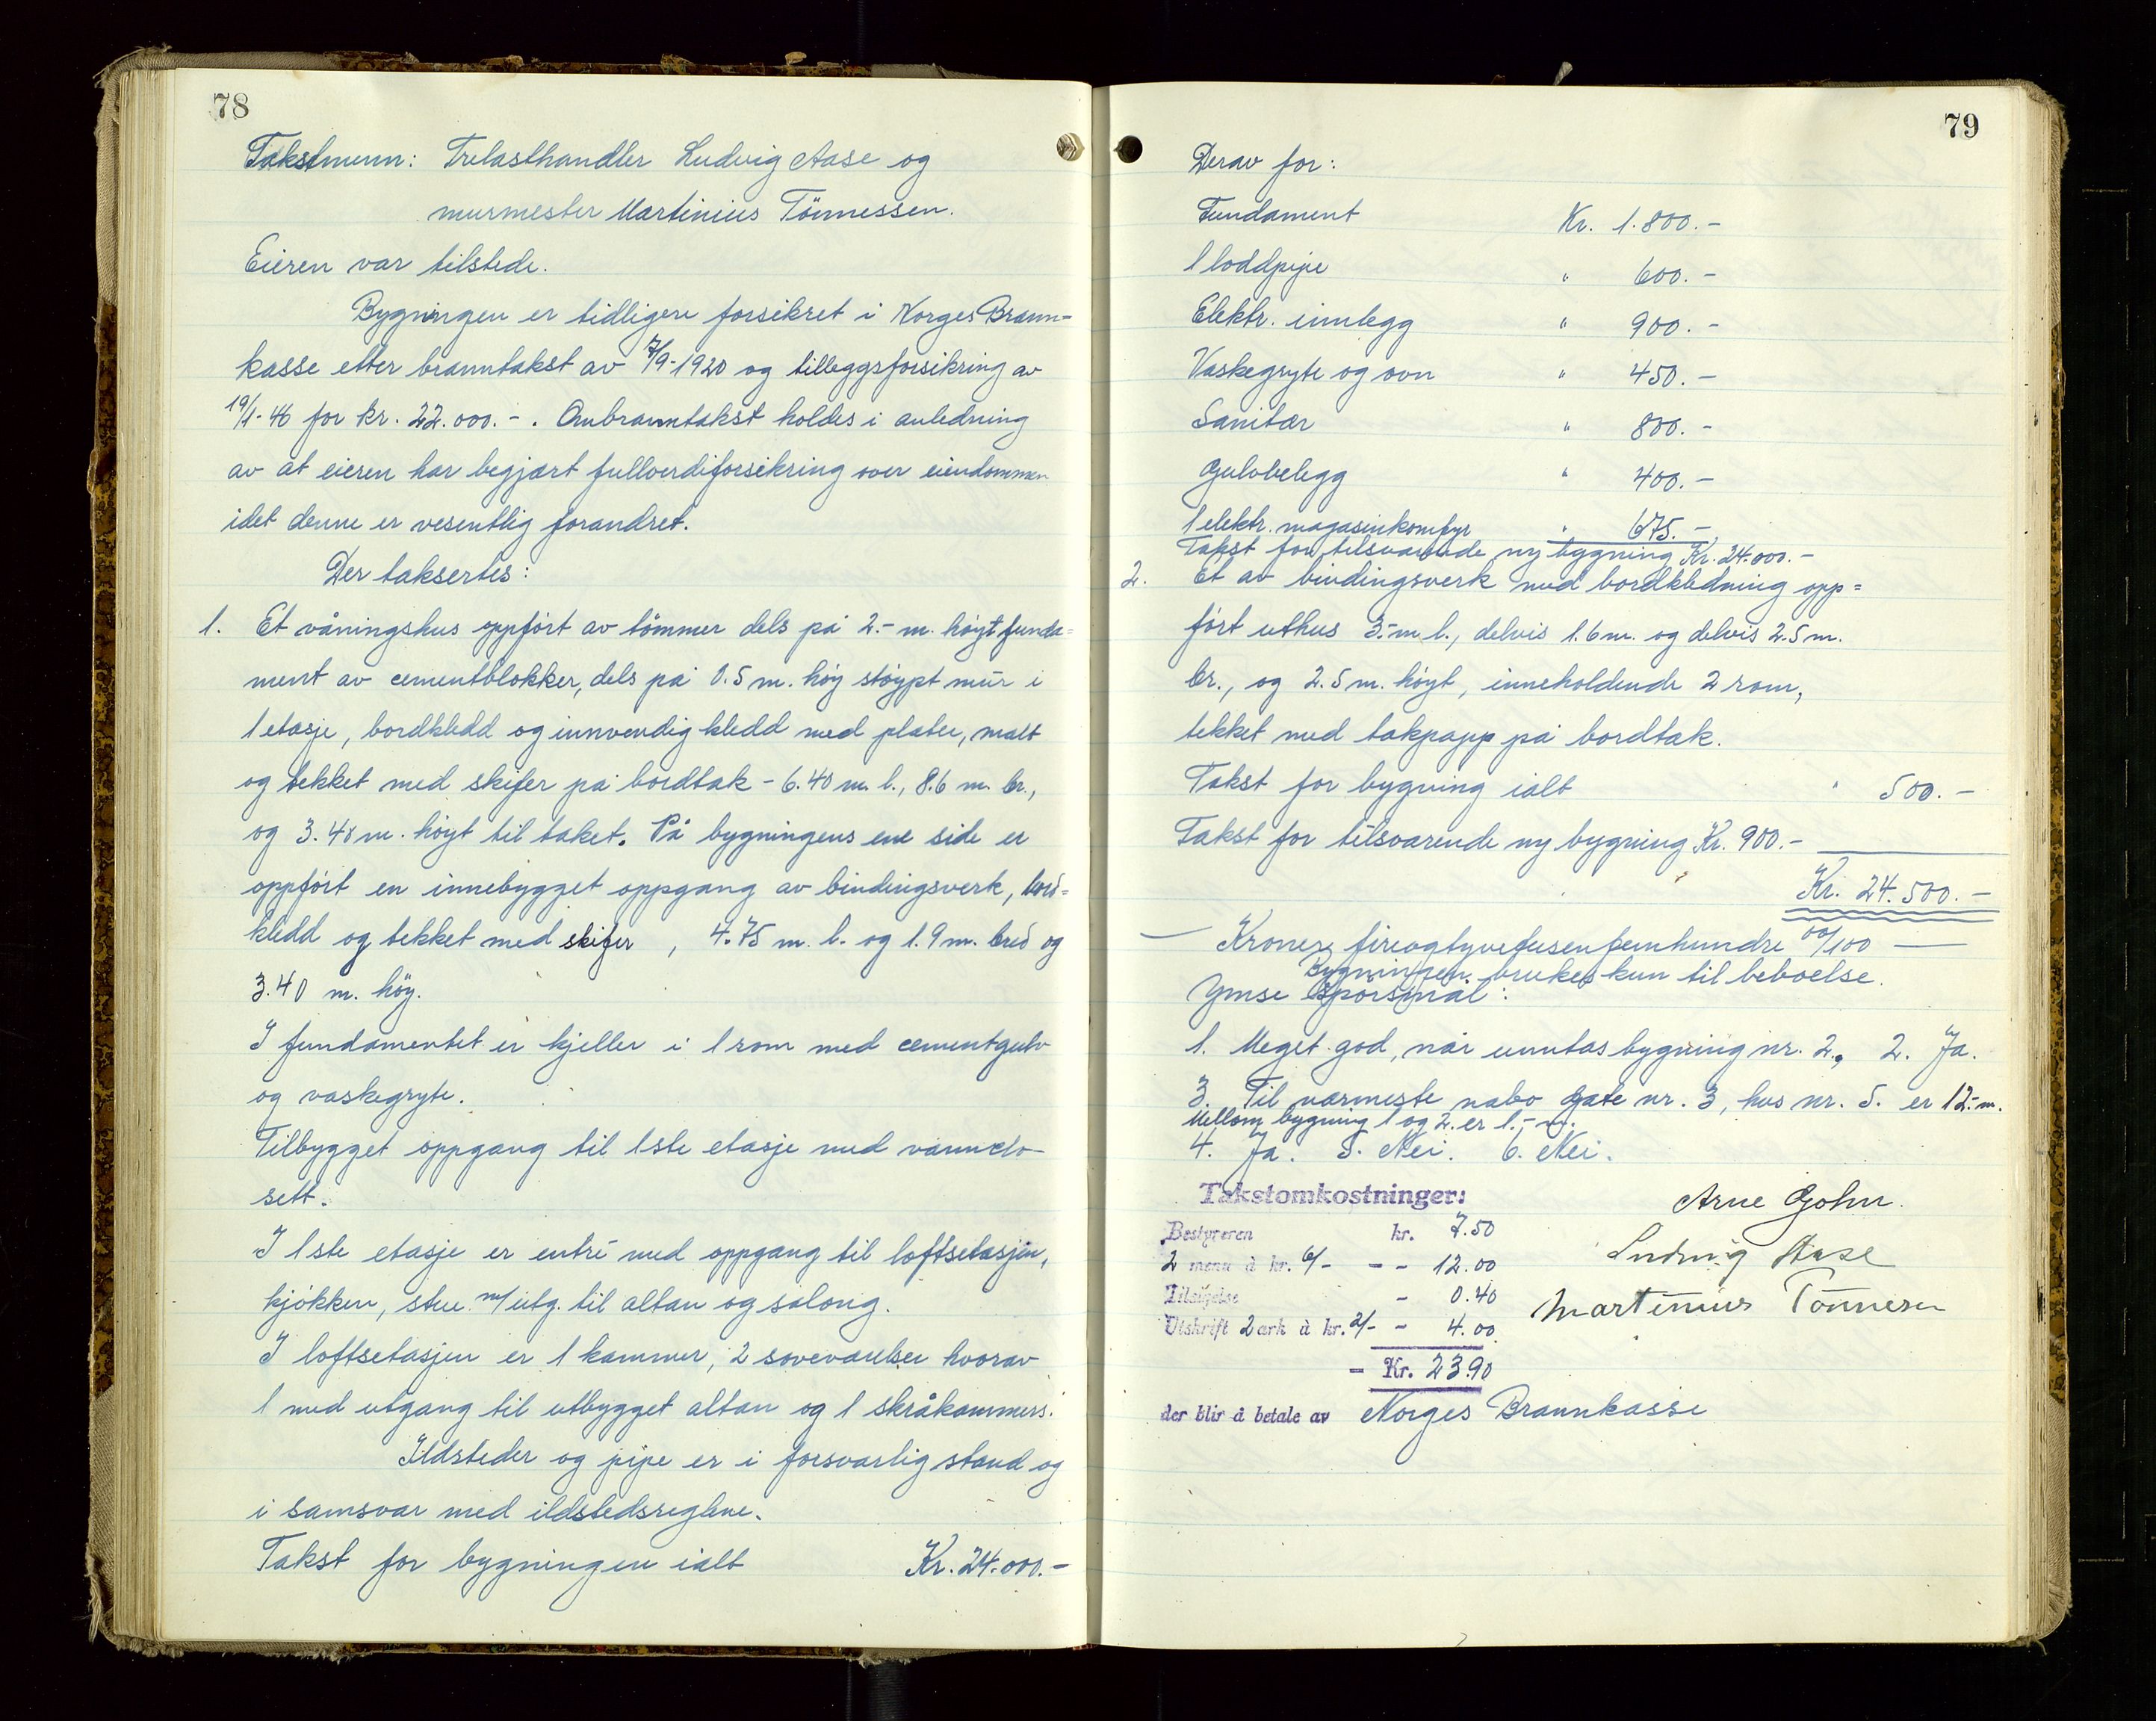 78
Takstmenn: Trelasthandler Ludvig Aase og
murmester Martinius Tönnessen.
Eieren var tilstede.
Bygningen er tidligere forsikret i Norges Brann-
kasse etter branntakst av 7/9-1920 og tilleggsforsikring av
19/1-46 for kr. 22.000.-. Ombranntakst holdes i anledning
av at eieren har begjært fullverdiforsikring over eiendommen
idet denne er vesentlig forandret.
Der taksertes:
1. Et våningshus oppfört av tömmer dels på 2.- m. höyt funda=
ment av cementblokker, dels på 0.5 m. höy stöypt mur i
1 etasje, bordkledd og innvendig kledd med plater, malt
og tekket med skifer på bordtak - 6.40 m. l., 8.6 m. br.,
og 3.40 m. höyt til taket. På bygningens ene side er
oppfört en innebygget oppgang av bindingsverk, bord=
kledd og tekket med skifer , 4.75 m. l. og 1.9 m. bred og
3.40 m. höy.
I fundamentet er kjeller i 1 rom med cementgulv
og vaskegryte.
Tilbygget oppgang til 1ste etasje med vannclo-
sett.
I 1ste etasje er entré med oppgang til loftsetasjen,
kjökken, stue m/utg. til altan og salong.
I loftsetasjen er 1 kammer, 2 soveværelser hvorav
1 med utgang til utbygget altan og 1 skråkammers.
Ildsteder og pipe er i forsvarlig stand og
i samsvar med ildstedsreglene.
Takst for bygningen ialt Kr. 24.000.-
79
Derav for:
Fundament Kr. 1.800.-
1 loddpipe " 600.-
Elektr. innlegg " 900.-
Vaskegryte og ovn " 450.-
Sanitær " 800.-
Gulvbelegg " 400.-
1 elektr. magasinkomfyr " 675.-
Takst for tilsvarende ny bygning Kr. 24.000.-
2. Et av bindingsverk med bordkledning opp=
fört uthus 3.- m l., delvis 1.6 m. og delvis 2.5 m.
br., og 2.5 m. höyt, inneholdende 2 rom,
tekket med takpapp på bordtak.
Takst for bygning ialt " 500.-
Takst for tilsvarende ny bygning Kr. 900.-
Kr. 24.500.-
Kroner fireogtyvetusenfemhundre 00/100
Bygningen brukes kun til beboelse.
Ymse spörsmål:
1. Meget god, når unntas bygning nr. 2. 2. Ja.
3. Til nærmeste nabo Gate nr. 3, hus nr. 5. er 12.- m.
Mellom bygning 1 og 2. er 1.- m.
4. Ja. 5. Nei. 6. Nei.
Takstomkostninger:
Bestyreren kr. 7.50
2 menn à kr. 6/- - - 12.00
Tilsigelse - 0.40
Utskrift 2 ark à kr. 2/- - 4.00
- Kr. 23.90
der blir å betale av Norges Brannkasse
Arne Gohn.
Ludvig Aase
Martinius Tönnesen